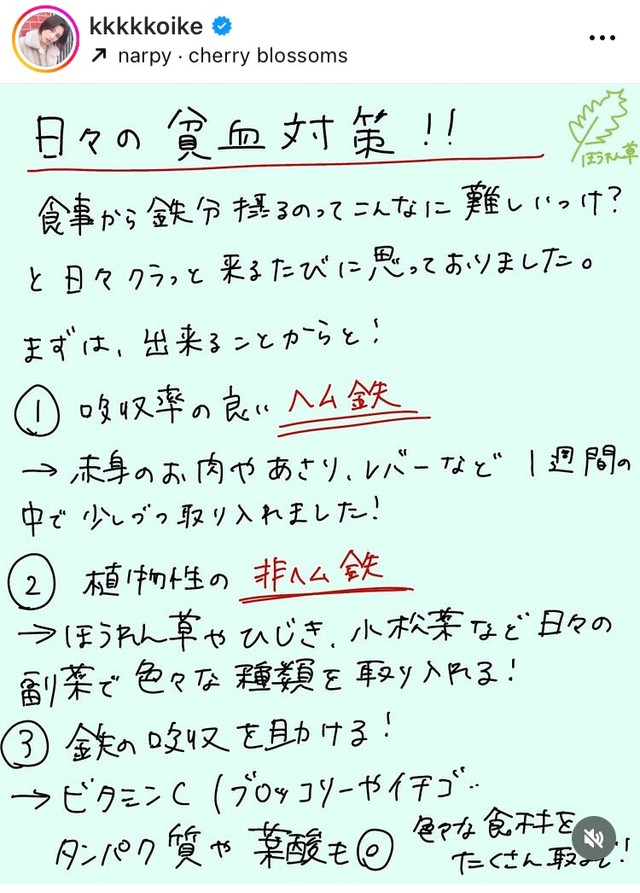 kkkkkoike
narpy · cherry blossoms
日々の貧血対策!!
ほうれん草
食事から鉄分摂るのってこんなに難しいっけ?
と日々クラっと来るたびに思っておりました。
まずは、出来ることからと!
① 吸収率の良い ヘム鉄
→ 赤身のお肉やあさり、レバーなど 1週間の
中で少しづつ取り入れました!
② 植物性の 非ヘム鉄
→ ほうれん草やひじき、小松菜など日々の
副菜で色々な種類を取り入れる!
③ 鉄の吸収を助ける!
→ ビタミンC (ブロッコリーやイチゴ‥
タンパク質や葉酸も◎
色々な食材を
たくさん取